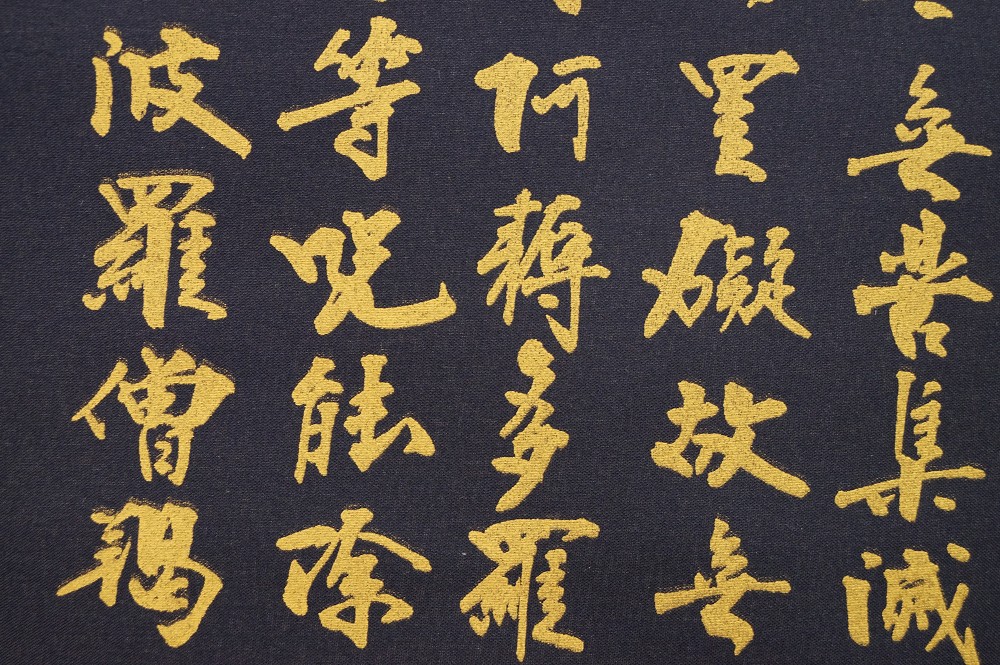 無苦集滅
罣礙故無
阿耨多羅
等咒能除
波羅僧揭